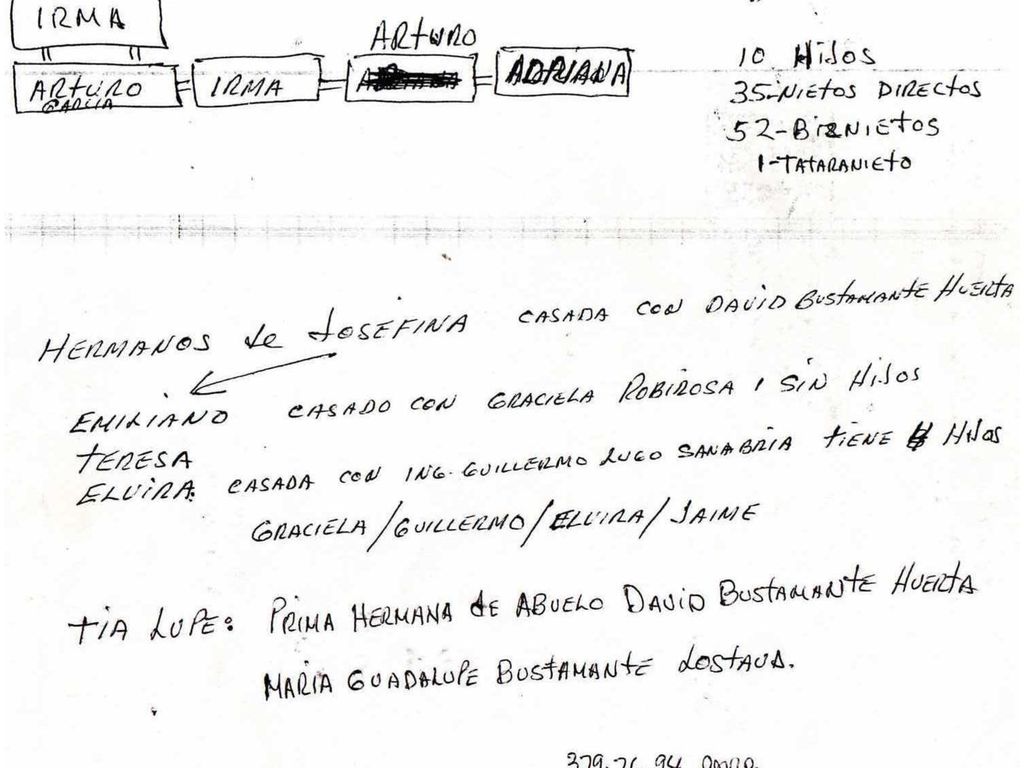 IRMA
ARTURO
ARTURO GARCIA IRMA ADRIANA
10 HIJOS
35-NIETOS DIRECTOS
52-BIZNIETOS
1-TATARANIETO
HERMANOS de JOSEFINA CASADA CON DAVID BUSTAMANTE HUERTA
EMILIANO CASADO CON GRACIELA ROBIROSA, SIN HIJOS
TERESA
ELVIRA: CASADA CON ING. GUILLERMO LUGO SANABRIA TIENE 4 HIJOS
GRACIELA/GUILLERMO/ELVIRA/JAIME
TIA LUPE: PRIMA HERMANA de ABUELO DAVID BUSTAMANTE HUERTA
MARIA GUADALUPE BUSTAMANTE